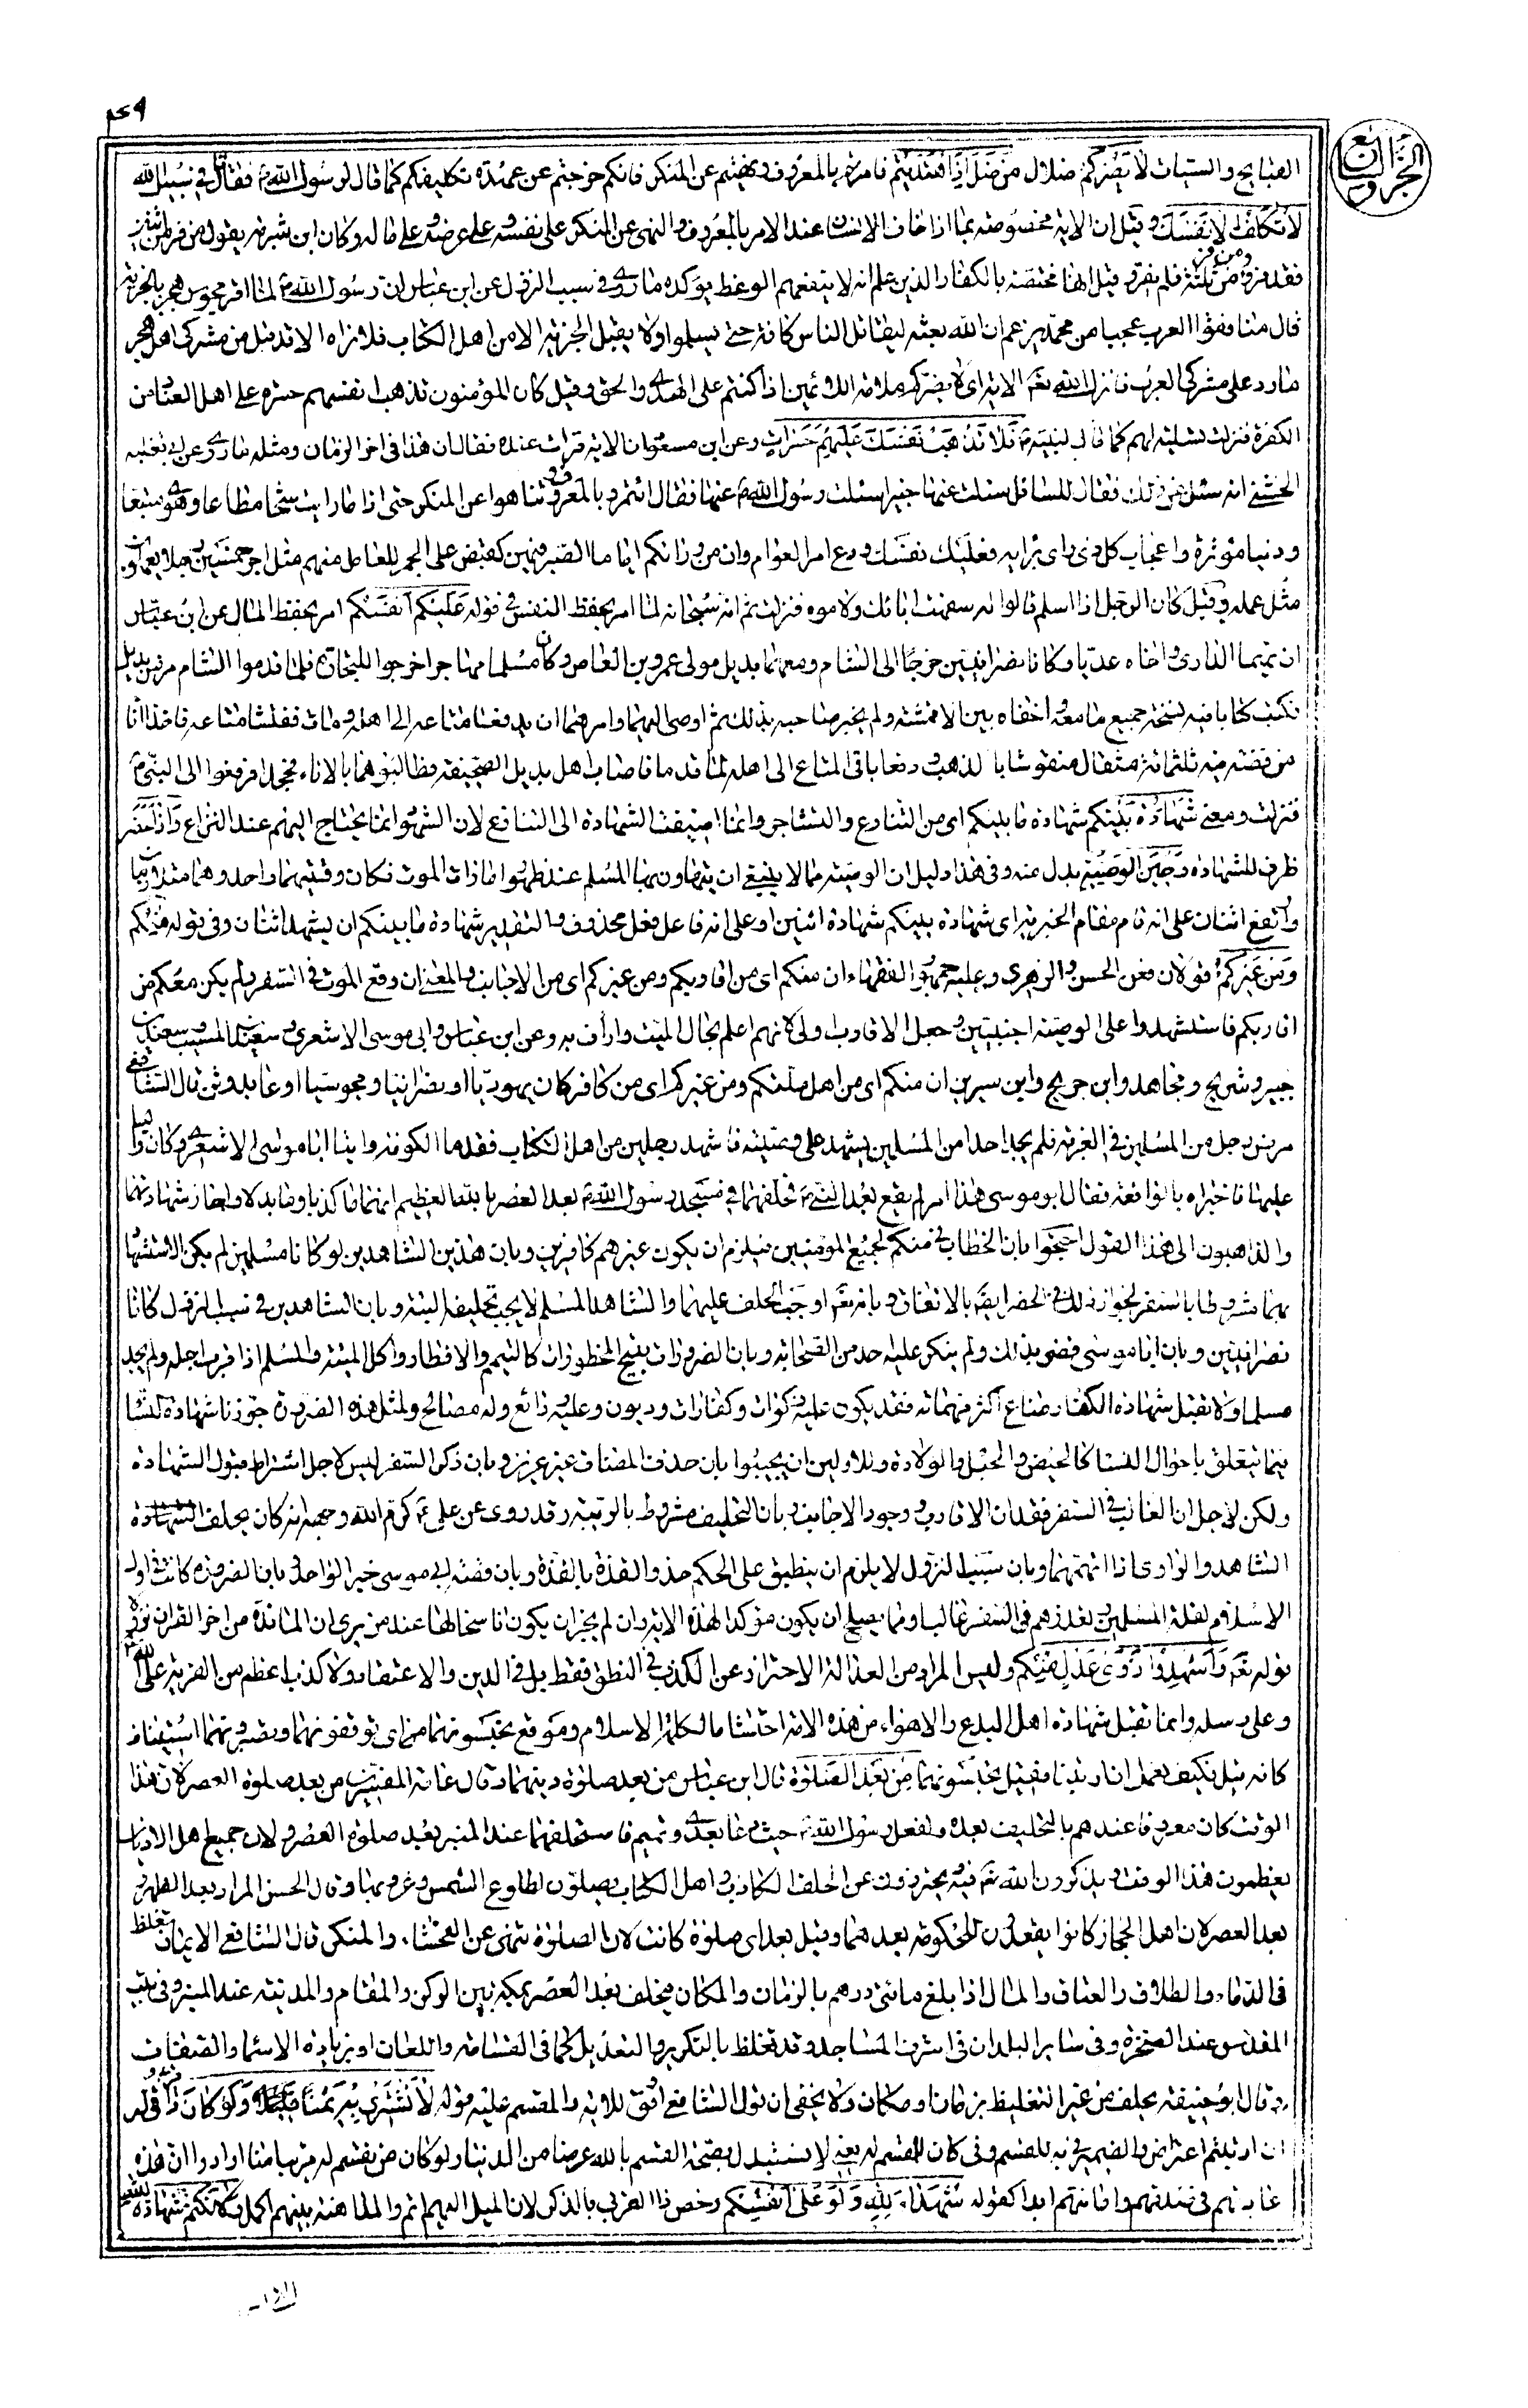 الجزء السابع
القبايح والسيئات لا يضركم ضلال من ضل اذا اهتديتم فامرتم بالمعروف ونهيتم عن المنكر فانكم خرجتم عن عهدة تكليفكم كما قال لرسول الله فقاتل في سبيل الله
لا تكلف الا نفسك وقيل ان الاية مخصوصة بما اذا خاف الانسان عند الامر بالمعروف والنهي عن المنكر على نفسه وعلى عرضه وعلى ماله وكان ابن شبرمة يقول من فر من اثنين
فقد فر ومن فر من ثلثة فلم يفر وقيل انها مختصة بالكفار الذين علم انه لا ينفعهم الوعظ يؤكده ما روى في سبب النزول عن ابن عباس ان رسول الله لما اقر مجوس هجر بالجزية
قال منافقوا العرب عجبا من محمد يزعم ان الله بعثه ليقاتل الناس كافة حتى يسلموا ولا يقبل الجزية الا من اهل الكتاب فلا نراه الا قد قبل من مشركى اهل هجر
ما رد على مشركى العرب فانزل الله تعم الاية اى لا يضركم ملامة اللائمين اذا كنتم على الهدى والحق وقيل كان المؤمنون تذهب انفسهم حسرة على اهل العناد من
الكفرة فنزلت تسلية لهم كما قال لنبيه فلا تذهب نفسك عليهم حسرات وعن ابن مسعود ان الاية قرات عنده فقال ان هذا في اخر الزمان ومثله ما روى عن ابى ثعلبة
الخشنى انه سئل عن ذلك فقال للسائل سئلت عنها خبيرا سئلت رسول الله عنها فقال ائتمروا بالمعروف وتناهوا عن المنكر حتى اذا ما رايت شحا مطاعا وهوى متبعا
ودنيا مؤثرة واعجاب كل ذى راى برايه فعليك نفسك ودع امر العوام وان من ورائكم اياما الصبر فيهن كقبض على الجمر للعامل منهم مثل اجر خمسين رجلا يعملون
مثل عمله وقيل كان الرجل اذا اسلم قالوا له سفهت اباءك ولاموه فنزلت ثم انه سبحانه لما امر بحفظ النفس في قوله عليكم انفسكم امر بحفظ المال عن ابن عباس
ان تميما الدارى واخاه عديا وكانا نصرانيين خرجا الى الشام ومعهما بديل مولى عمرو بن العاص وكان مسلما مهاجرا خرجوا للتجارة فلما قدموا الشام مرض بديل
فكتب كتابا فيه نسخة جميع ما معه واخفاه بين الاقمشة ولم يخبر صاحبه بذلك ثم اوصى اليهما وامرهما ان يدفعا متاعه الى اهله ومات ففتشا متاعه فاخذا اناء
من فضة فيه ثلثمائة مثقال منقوشا بالذهب ودفعا باقى المتاع الى اهله لما قدما فاصاب اهل بديل الصحيفة فطالبوهما بالاناء فجحدا فرفعوا الى النبى
فنزلت ومعنى شهادة بينكم شهادة ما بينكم اى من التنازع والتشاجر وانما اضيفت الشهادة الى التنازع لان الشهود انما يحتاج اليهم عند النزاع واذا حضر
ظرف للشهادة وحين الوصية بدل منه وفي هذا دليل ان الوصية مما لا ينبغى ان يتهاون بها المسلم عند ظهور امارات الموت فكان وقتيهما واحد وهما متلازمان
وارتفع اثنان على انه قام مقام الخبرية اى شهادة بينكم شهادة اثنين او على انه فاعل فعل محذوف والتقدير شهادة ما بينكم ان يشهد اثنان وفي قوله منكم
ومن غيركم قولان فعن الحسن والزهرى وعليه جمهور الفقهاء ان منكم اى من اقاربكم ومن غيركم اى من الاجانب والمعنى ان وقع الموت في السفر ولم يكن معكم من
اقاربكم فاستشهدوا على الوصية اجنبيين وجعل الاقارب اولى لانهم اعلم بحال الميت وارأف به وعن ابن عباس وابى موسى الاشعرى وسعيد بن المسيب وسعيد بن
جبير وشريح ومجاهد وابن جريج وابن سيرين ان منكم اى من اهل ملتكم ومن غيركم اى من كافر كان يهوديا او نصرانيا ومجوسيا او عابد وثن قال الشافعى
مرض رجل من المسلمين في الغربة فلم يجد احدا من المسلمين يشهد على وصيته فاشهد رجلين من اهل الكتاب فقدما الكوفة واتيا ابا موسى الاشعرى وكان واليا
عليها فاخبراه بالواقعة فقال ابو موسى هذا امر لم يقع بعد النبى فحلفهما في مسجد رسول الله بعد العصر بالله العظيم انهما ما كذبا وما بدلا واجاز شهادتهما
والذاهبون الى هذا القول احتجوا بان الخطاب في منكم لجميع المؤمنين فيلزم ان يكون غيرهم كافرين وبان هذين الشاهدين لو كانا مسلمين لم يكن الاستشهاد
بهما مشروطا بالسفر لجواز ذلك في الحضر ايضا بالاتفاق وبانه تعم اوجب الحلف عليهما والشاهد المسلم لا يجب تحليفه البتة وبان الشاهدين في سبب النزول كانا
نصرانيين وبان ابا موسى قضى بذلك ولم ينكر عليه احد من الصحابة وبان الضرورات تبيح المحظورات كالتيمم والافطار واكل الميتة والمسلم اذا قرب اجله ولم يجد
مسلما ولا تقبل شهادة الكفار ضاع اكثر مهماته فقد يكون عليه زكوات وكفارات وديون وعليه ودائع وله مصالح ولمثل هذه الضرورة جوزنا شهادة النساء
فيما يتعلق باحوال النساء كالحيض والحبل والولادة وللاولين ان يجيبوا بان حذف المضاف غير عزيز وبان ذكر السفر ليس لاجل اشتراط قبول الشهادة
ولكن لاجل ان الغالب في السفر فقدان الاقارب ووجود الاجانب وبان التحليف مشروط بالريبة وقد روى عن على كرم الله وجهه انه كان يحلف الشهادة
الشاهد والراوى اذا اتهمهما وبان سبب النزول لا يلزم ان ينطبق على الحكم حذو القذة بالقذة وبان قصة ابى موسى خبر الواحد وبان الضرورة كانت في اول
الاسلام لقلة المسلمين وتعذرهم في السفر غالبا ومما يصلح ان يكون مؤكدا لهذه الاية وان لم يجز ان يكون ناسخا لها عند من يرى ان المائدة من اخر القران نزولا
قوله تعم واشهدوا ذوى عدل منكم وليس المراد من العدالة الاحتراز عن الكذب في النطق فقط بل في الدين والاعتقاد ولا كذب اعظم من الفرية على الله
وعلى رسله وانما تقبل شهادة اهل البدع والاهواء من هذه الامة احتشاما لكلمة الاسلام وموقع تحبسونهما اى توقفونهما وتصبرونهما استيناف
كانه قيل فكيف نعمل ان ارتبنا فقيل تحبسونهما من بعد الصلوة قال ابن عباس من بعد صلوة دينهما وقال عامة المفسرين من بعد صلوة العصر لان هذا
الوقت كان معروفا عندهم بالتحليف بعده ولفعل رسول الله حيث دعا بعدى وتميم فاستحلفهما عند المنبر بعد صلوة العصر ولان جميع اهل الاديان
يعظمون هذا الوقت ويذكرون الله تعم فيه ويحترزون عن الحلف الكاذب واهل الكتاب يصلون لطلوع الشمس وغروبها وقال الحسن المراد بعد الظهر او
بعد العصر لان اهل الحجاز كانوا يقعدون للحكومة بعدهما وقيل بعد اى صلوة كانت لان الصلوة تنهى عن الفحشاء والمنكر قال الشافعى الايمان تغلظ
في الدماء والطلاق والعتاق والمال اذا بلغ مائتى درهم بالزمان والمكان فيحلف بعد العصر بمكة بين الركن والمقام والمدينة عند المنبر وفي بيت
المقدس عند الصخرة وفي ساير البلدان في اشرف المساجد وقد تغلظ بالتكرير والتعديل كما في القسامة واللعان او بزيادة الاسماء والصفات
وقال ابو حنيفة يحلف من غير التغليظ بزمان او مكان ولا يخفى ان قول الشافعى اوفق للاية والمقسم عليه قوله لا نشترى به ثمنا قليلا ولو كان ذا قربى وقوله
ان ارتبتم اعتراض والضمير في به للقسم وفي كان للمقسم له يعنى لا نستبدل بصحة القسم بالله عرضا من الدنيا ولو كان من نقسم له قريبا منا ارادوا ان هذه
عادتهم في صدقهم وامانتهم ابدا كقوله شهداء لله ولو على انفسكم وخص ذا القربى بالذكر لان الميل اليهم اتم والمداهنة بينهم اكمل ولا نكتم شهادة الله